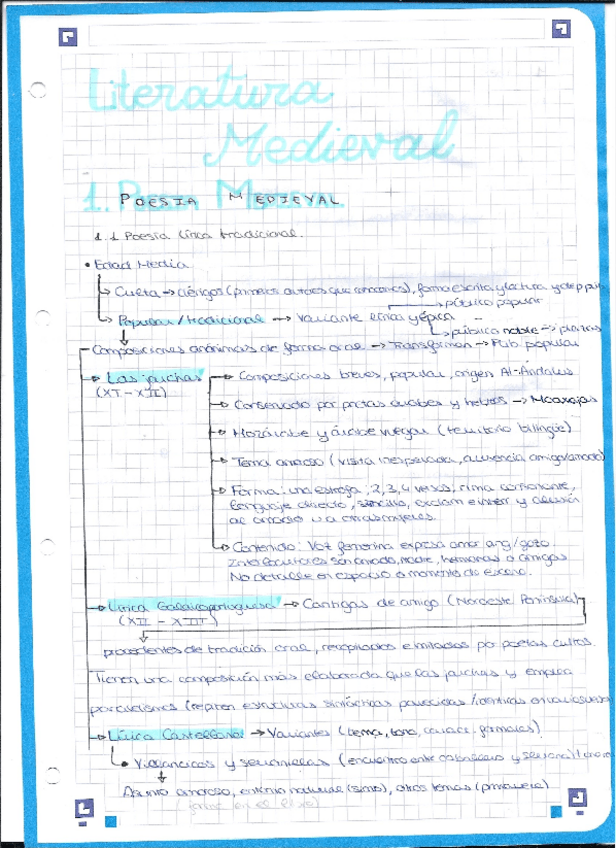 Literatura
Medieval
1. POESIA MEDIEVAL
1.1 Poesía lírica tradicional.
• Edad Media
Culta → clérigos (primeros autores que conocemos), forma escrita y lectura y
→ público popular
Popular/tradicional → Variante lírica y épica
→ público noble →
Composiciones anónimas de forma oral → Transforman → Pub. popular
→ Las jarchas → Composiciones breves, popular, origen Al-Andalus
(XI - XII)
→ Conservado por poetas árabes y hebreos → Moaxajas
→ Mozárabe y árabe vulgar (territorio bilingüe)
→ Tema amoroso (visita inesperada, ausencia amigo/amado)
→ Forma: una estrofa, 2, 3, 4 versos, rima consonante,
lenguaje directo, sencillo, exclam e interr y alusión
al amado u a otras mujeres.
→ Contenido: Voz femenina expresa amor ang/gozo.
Interlocutores son amado, madre, hermanas o amigas
No detalle en espacio o momento de
→ Lírica Galaicoportuguesa → Cantigas de amigo (Noroeste Península)
(XII - XIII)
procedentes de tradición oral, recopilados e imitados por poetas cultos.
Tienen una composición más elaborada que las jarchas y emplea
paralelismos (repiten estructuras sintácticas parecidas/idénticas
→ Lírica Castellana → Variantes (tema, tono, caract. formales)
• Villancicos y serranillas (encuentro entre caballero y serrana)
Asunto amoroso, entorno natural (simb), otros temas (primavera)